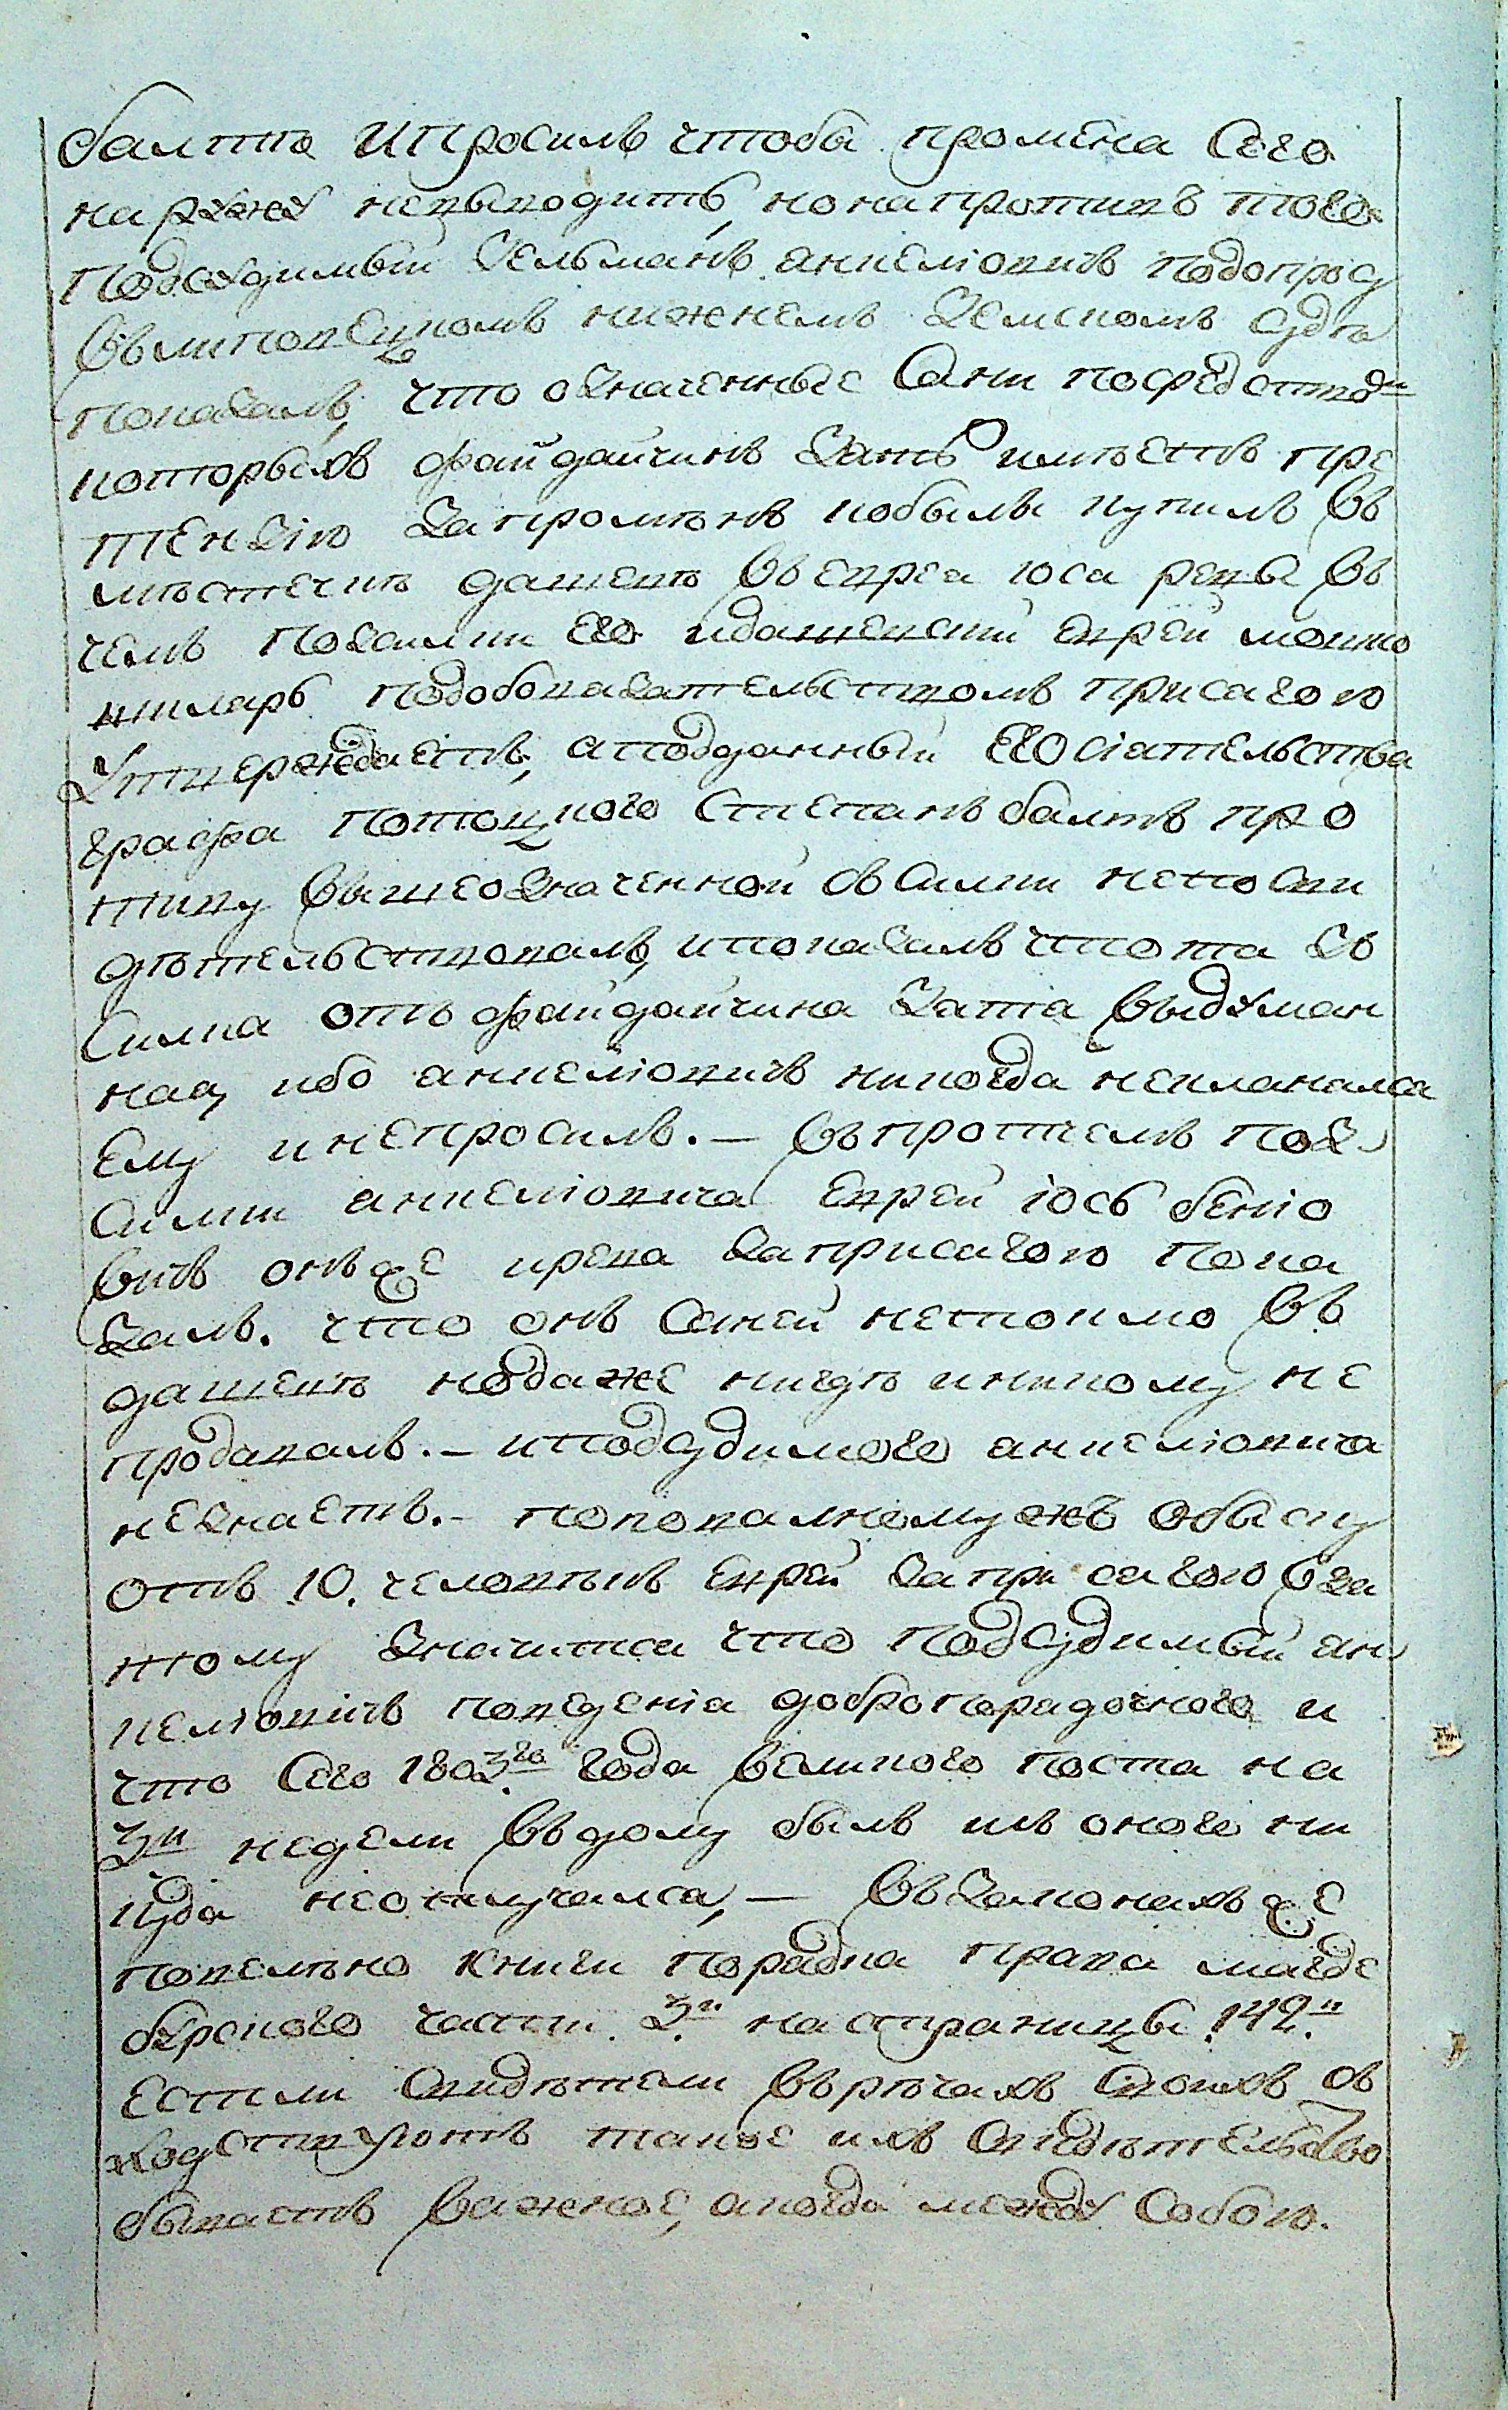 балтѣ ипросилъ чтобы промѣна Сего
наружу невыводить, нонапротивъ того
Подсудимый Зельманъ анкелiовичъ Подопросу
Въ липовецкомъ нижнемъ Земскомъ судѣ
показалъ, что означенные Сани посредствомъ
которыхъ файдайчинъ Зать имѣетъ пре
тензiю Запромѣнъ кобылы купилъ Въ
мѣстечкѣ дашевѣ Въ еврея Іоса рева Въ
чемъ Посилки Его идашевскiй еврей мошко
шкляръ Подобовязательствомъ присягою
Утверждаетъ, аподданный Его сiятельства
графа Потоцкого Степанъ балтъ про
тиву Вышеозначенной съ Силки непосви
дѣтельствовалъ, ипоказалъ чтота съ
Силка отъ файдайчина Затя Выдуман
ная, ибо анкелiовичъ никогда некланялся
Ему инепросилъ. — Въпротчемъ Поз
Силки анкелiовича Еврей іось бенiо
Вичъ онъже крева Заприсягою Пока
Залъ. что онъ Саней нетокмо Въ
дашевѣ нодаже нигдѣ иникому не
продавалъ. — иподсудимого анкелiовича
незнаетъ. — поповалномужъ обыску
отъ 10. человѣкъ Еврей Заприсягою Вза
тому Значится что Подсудимый ан
келiовичъ поведенiя добропорядочного и
что Сего 1803го года Великого поста на
3й недели Въ дому былъ изъ оного ни
куда неотлучался, — Въ Законахъ же
повелѣно книги Порядка права магде
бурского части. 3й настраницы. 142й
естли Свидѣтели Върѣчахъ Своихъ съ
ходствуютъ такое ихъ Свидѣтельство
бываетъ Важное, акогда между Собою.